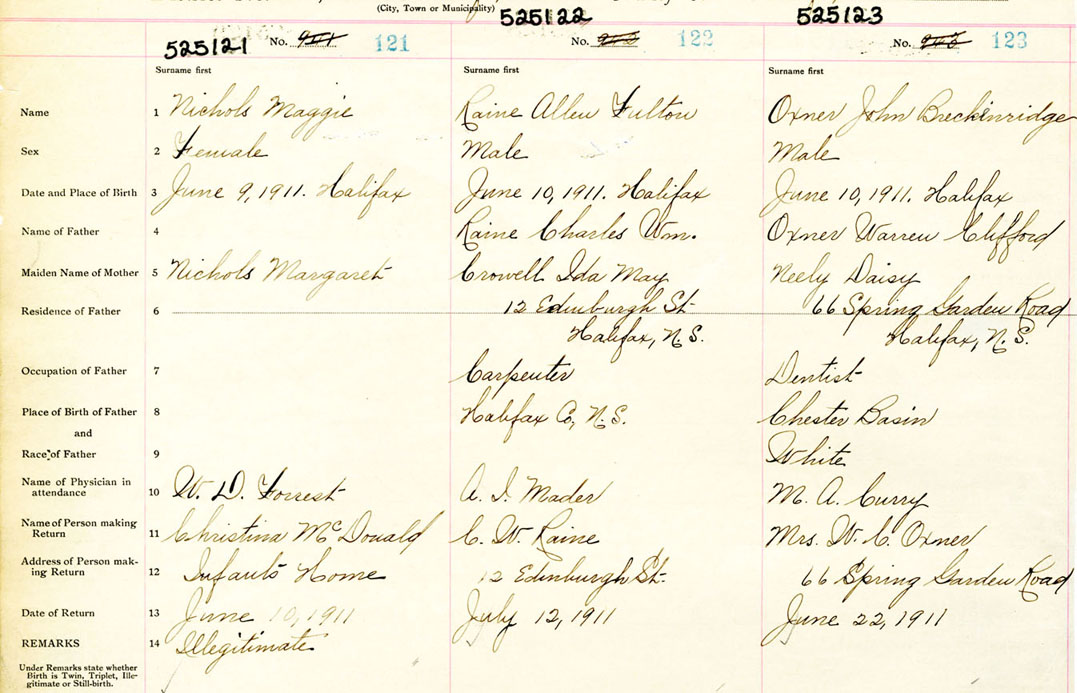 (City, Town or Municipality)
525121 No. 121
525122 No. 122
525123 No. 123
Surname first Surname first Surname first
Name 1 Nichols Maggie Raine Allen Fulton Oxner John Breckinridge
Sex 2 Female Male Male
Date and Place of Birth 3 June 9, 1911. Halifax June 10, 1911. Halifax June 10, 1911. Halifax
Name of Father 4 Raine Charles Wm. Oxner Warren Clifford
Maiden Name of Mother 5 Nichols Margaret Crowell Ida May Neely Daisy
Residence of Father 6 12 Edinburgh St 66 Spring Garden Road
Halifax, N.S. Halifax, N.S.
Occupation of Father 7 Carpenter Dentist
Place of Birth of Father 8 Halifax Co, N.S. Chester Basin
and
Race of Father 9 White
Name of Physician in
attendance 10 W. D. Forrest A. I. Mader M. A. Curry
Name of Person making
Return 11 Christina McDonald C. W. Raine Mrs. W. C. Oxner
Address of Person mak-
ing Return 12 Infants Home 12 Edinburgh St. 66 Spring Garden Road
Date of Return 13 June 10, 1911 July 12, 1911 June 22, 1911
REMARKS 14 Illegitimate
Under Remarks state whether
Birth is Twin, Triplet, Ille-
gitimate or Still-birth.